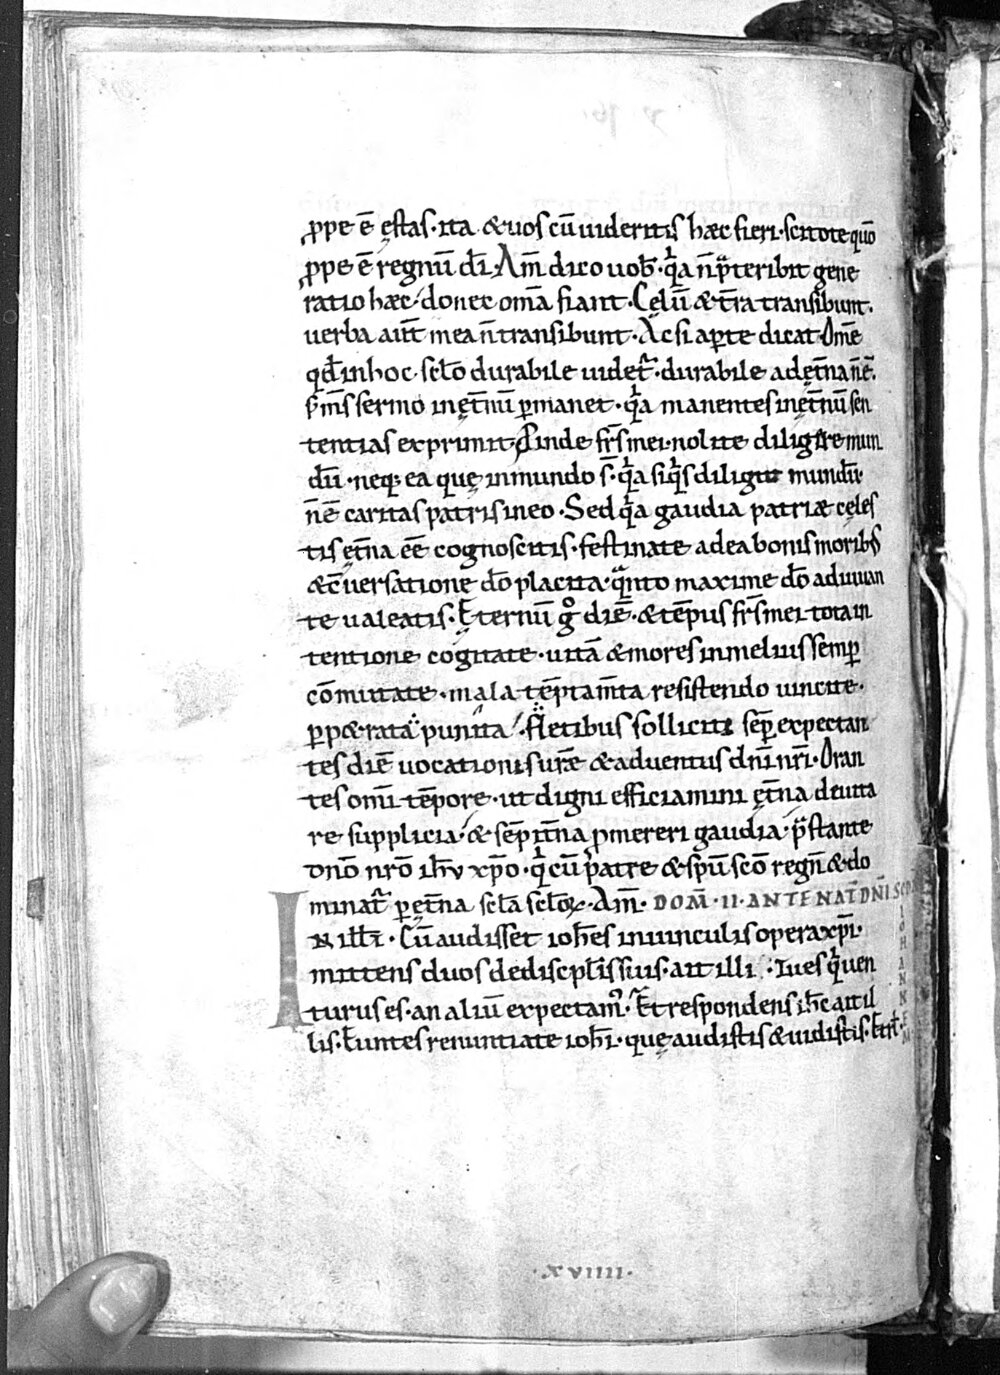 ꝓpe ē ęstas · ita & uos cū uideritis hæc fieri · scitote quō
ꝓpe ē regnū dī · Am̄ dico uob̄ · qͥa n̄ p̄teribit gene
ratio hæc · donec om̄a fiant · Cęlū & t̄ra transibunt ·
uerba aut̄ mea n̄ transibunt · Ac si aꝑte dicat · Om̄e
qd̄ in hoc · sc̄lo durabile uidet᷑ · durabile ad ęt̄na n̄ ē ·
s; m̄s sermo in ęt̄nū ꝑmanet · qͥa manentes in ęt̄nū sen
tentias exprimit · Proinde fr̄s mei · nolite diligere mun
dū · neq; ea quę in mundo s̄ · qͥa si qͥs diligit mundū
n̄ ē caritas patris in eo · Sed qͥa gaudia patriæ cęles
tis ęt̄na eē cognoscitis · festinate ad ea bonis morib;
& c̄uersatione dō placita · qͣnto maxime dō adiuuan
te ualeatis · Ęternū gͦ diē · & tēpus fr̄s mei tota in
tentione cogitate · uitā & mores in melius semꝑ
cōmutate · mala tēptam̄ta resistendo uincite ·
ꝑpætrata punita fletibus solliciti sēp expectan
tes diē uocationis urǣ & aduentus dn̄i nr̄i · Oran
tes om̄i tēpore · ut digni efficiamini ęt̄na deuita
re supplicia · & sēpit̄na ꝓmereri gaudia · p̄stante
dn̄o nr̄o ih̄u xp̄o · qͥ cū patre & sp̄u sc̄o regn̄ & do
minat᷑ ꝑ ęt̄na sc̄la sc̄loꝝ · Am̄ · DOM̄ · II · ANTE NAT̄ DN̄I SCD̄M
IOHANNEM
IN ill̄ · Cū audisset ioh̄es in uinculis opera xp̄i ·
mittens duos de discipl̄is suis · ait illi · Tu es qͥ uen
turus es · an aliū expectam᷒ · Et respondens ih̄c ait il
lis · Euntes renuntiate ioh̄i · quę audistis & uidistis · Et rl̄ ·
· XVIIII ·